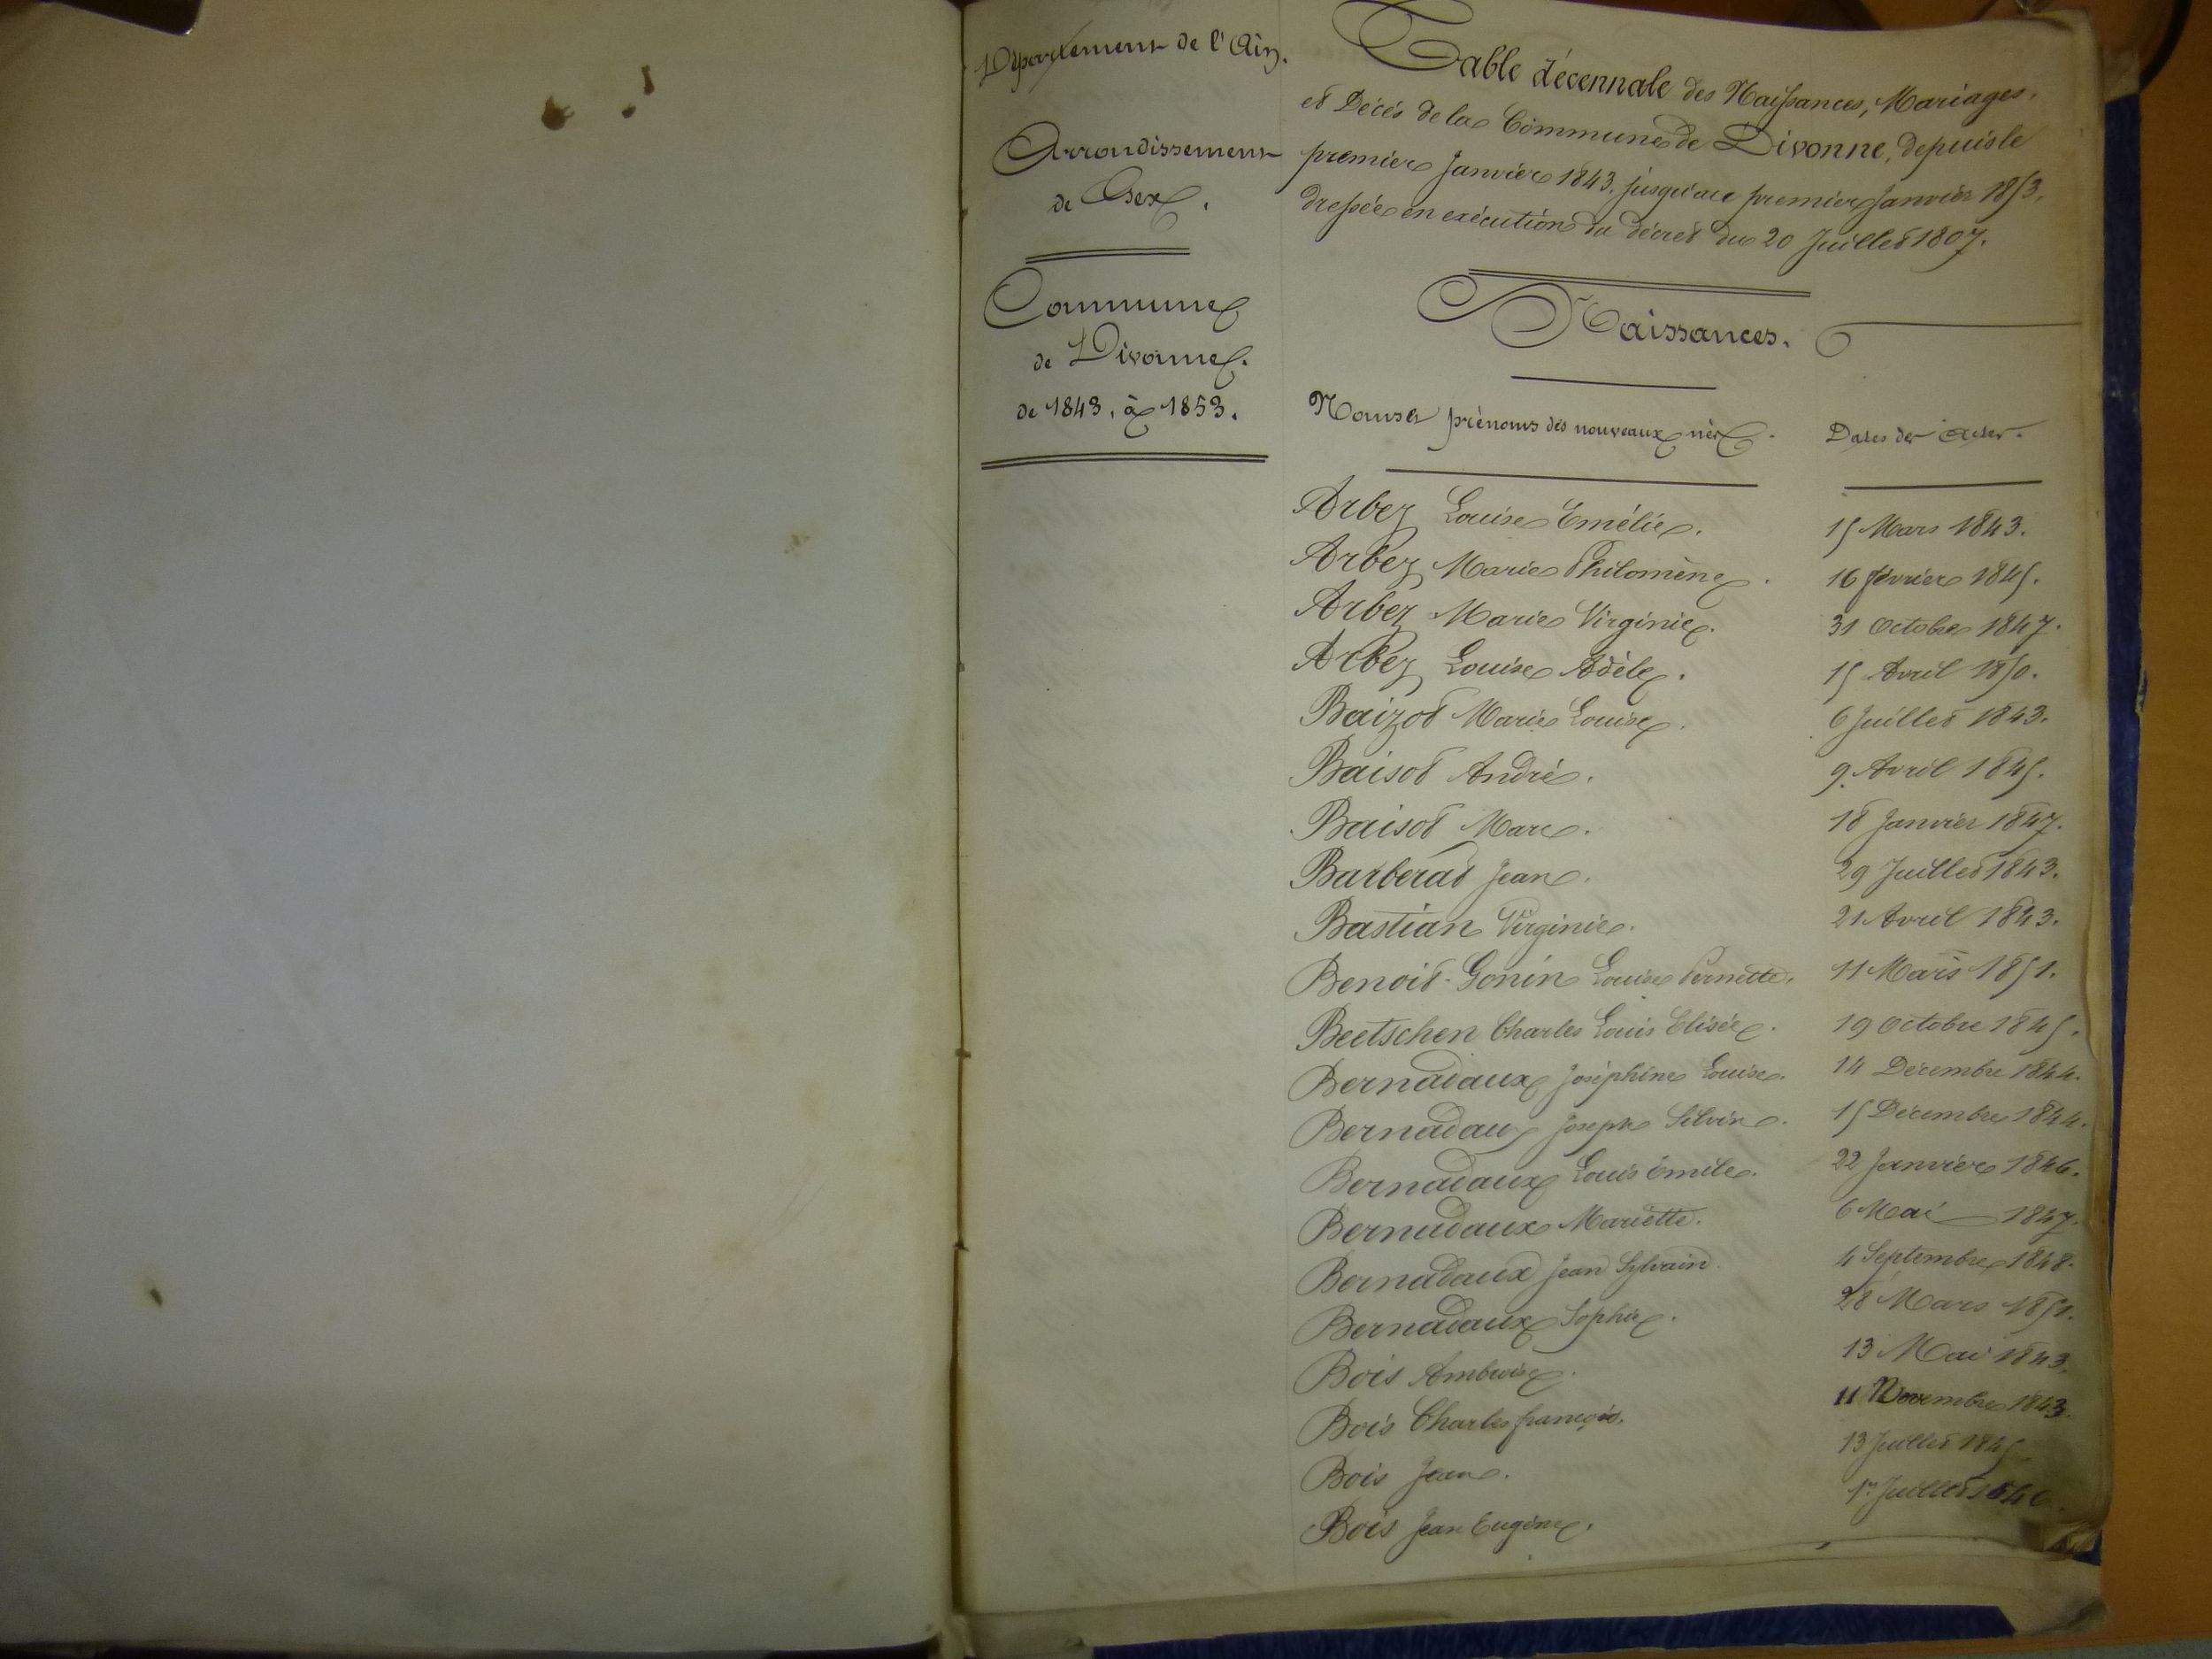 Département de l'Ain.
Arrondissement
de Gex.
Commune
de Divonne.
de 1843, à 1853.
Table décennale des Naissances, Mariages,
et Décès de la Commune de Divonne, depuis le
premier Janvier 1843, jusqu'au premier Janvier 1853,
dressée en exécution du décret du 20 Juillet 1807.
Naissances.
Noms et prénoms des nouveaux nés. Dates des Actes.
Arbez Louise Emélie. 15 Mars 1843.
Arbez Marie Philomène. 16 février 1845.
Arbez Marie Virginie. 31 Octobre 1847.
Arbez Louise Adèle. 15 Avril 1850.
Baizot Marie Louise. 6 Juillet 1843.
Baisot André. 9 Avril 1845.
Baisot Marc. 18 Janvier 1847.
Barberat Jean. 29 Juillet 1843.
Bastian Virginie. 21 Avril 1843.
Benoit-Gonin Louise Pernette. 11 Mars 1851.
Beetschen Charles Louis Elisée. 19 Octobre 1845.
Bernadaux Joséphine Louise. 14 Décembre 1844.
Bernadaux Joseph Silvin. 15 Décembre 1844.
Bernadaux Louis émile. 22 Janvier 1846.
Bernadaux Mariette. 6 Mai 1847.
Bernadaux Jean Sylvain. 4 Septembre 1848.
Bernadaux Sophie. 28 Mars 1851.
Bois Ambroise. 13 Mai 1843.
Bois Charles françois. 11 Novembre 1843.
Bois Jean. 13 Juillet 1845.
Bois Jean Eugène. 1er Juillet 1846.